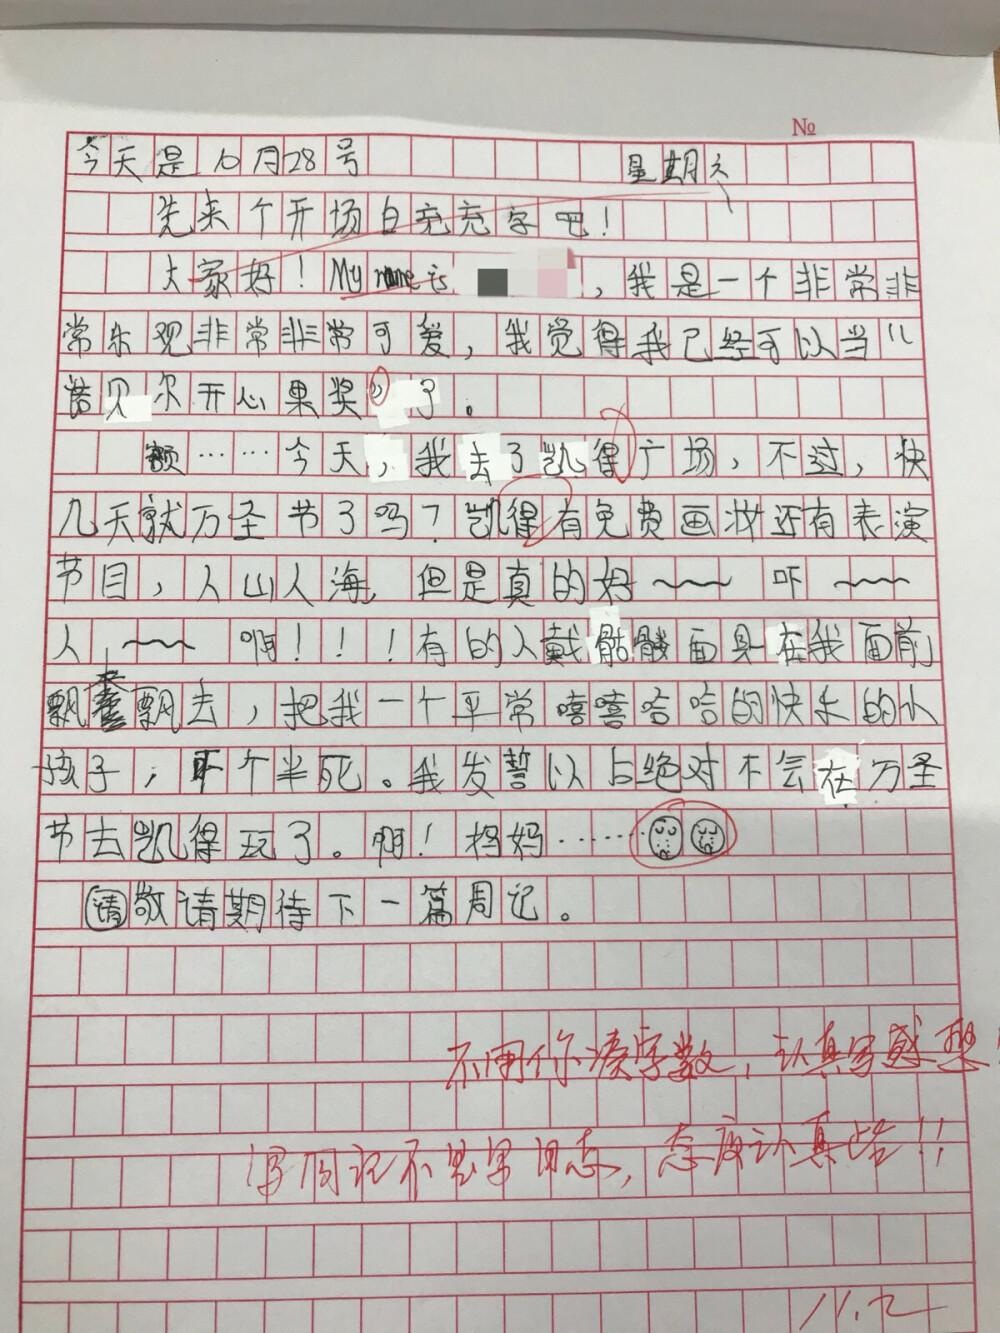 №
今天是10月28号 星期六
先来个开场白充充字吧！
大家好！My name is ，我是一个非常非
常乐观非常非常可爱，我觉得我已经可以当“
诺贝尔开心果奖”了。
额……今天，我去了凯得广场，不过，快
几天就万圣节了吗？凯得有免费画妆还有表演
节目，人山人海，但是真的好～～吓～～
人，～～啊！！！有的人戴骷髅面具在我面前
飘来飘去，把我一个平常嘻嘻哈哈的快乐的小
孩子，吓个半死。我发誓以后绝对不会在万圣
节去凯得玩了。啊！妈妈……
请敬请期待下一篇周记。
不用你凑字数，认真写感想！
写周记不是写日志，态度认真些！！
11.2